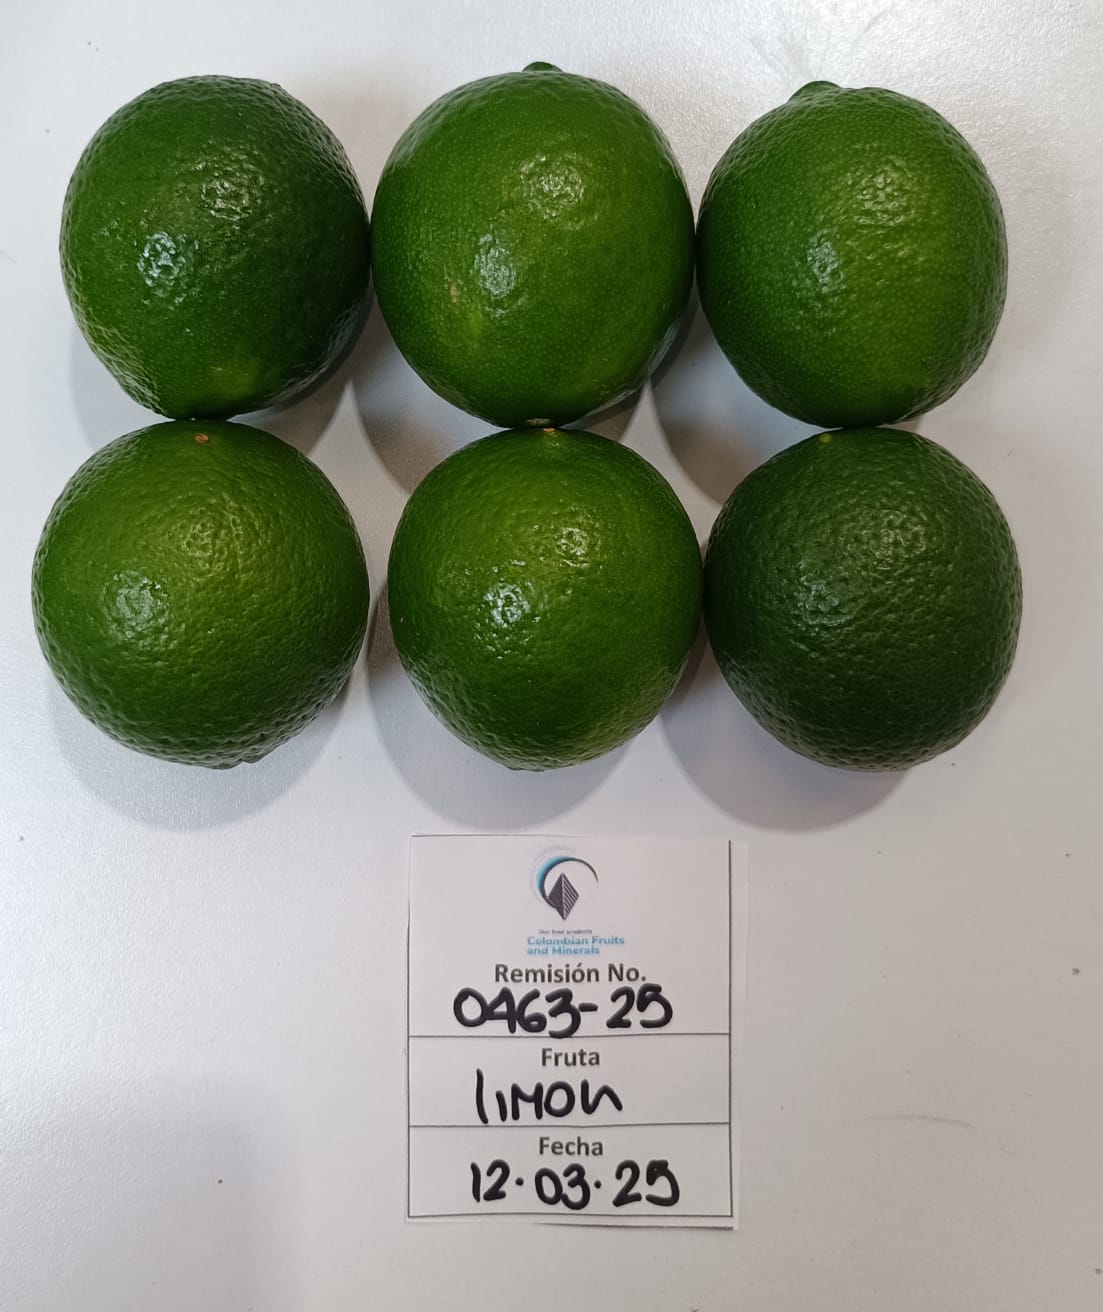 Our best products
Colombian Fruits
and Minerals
Remisión No.
0463-25
Fruta
limon
Fecha
12.03.25